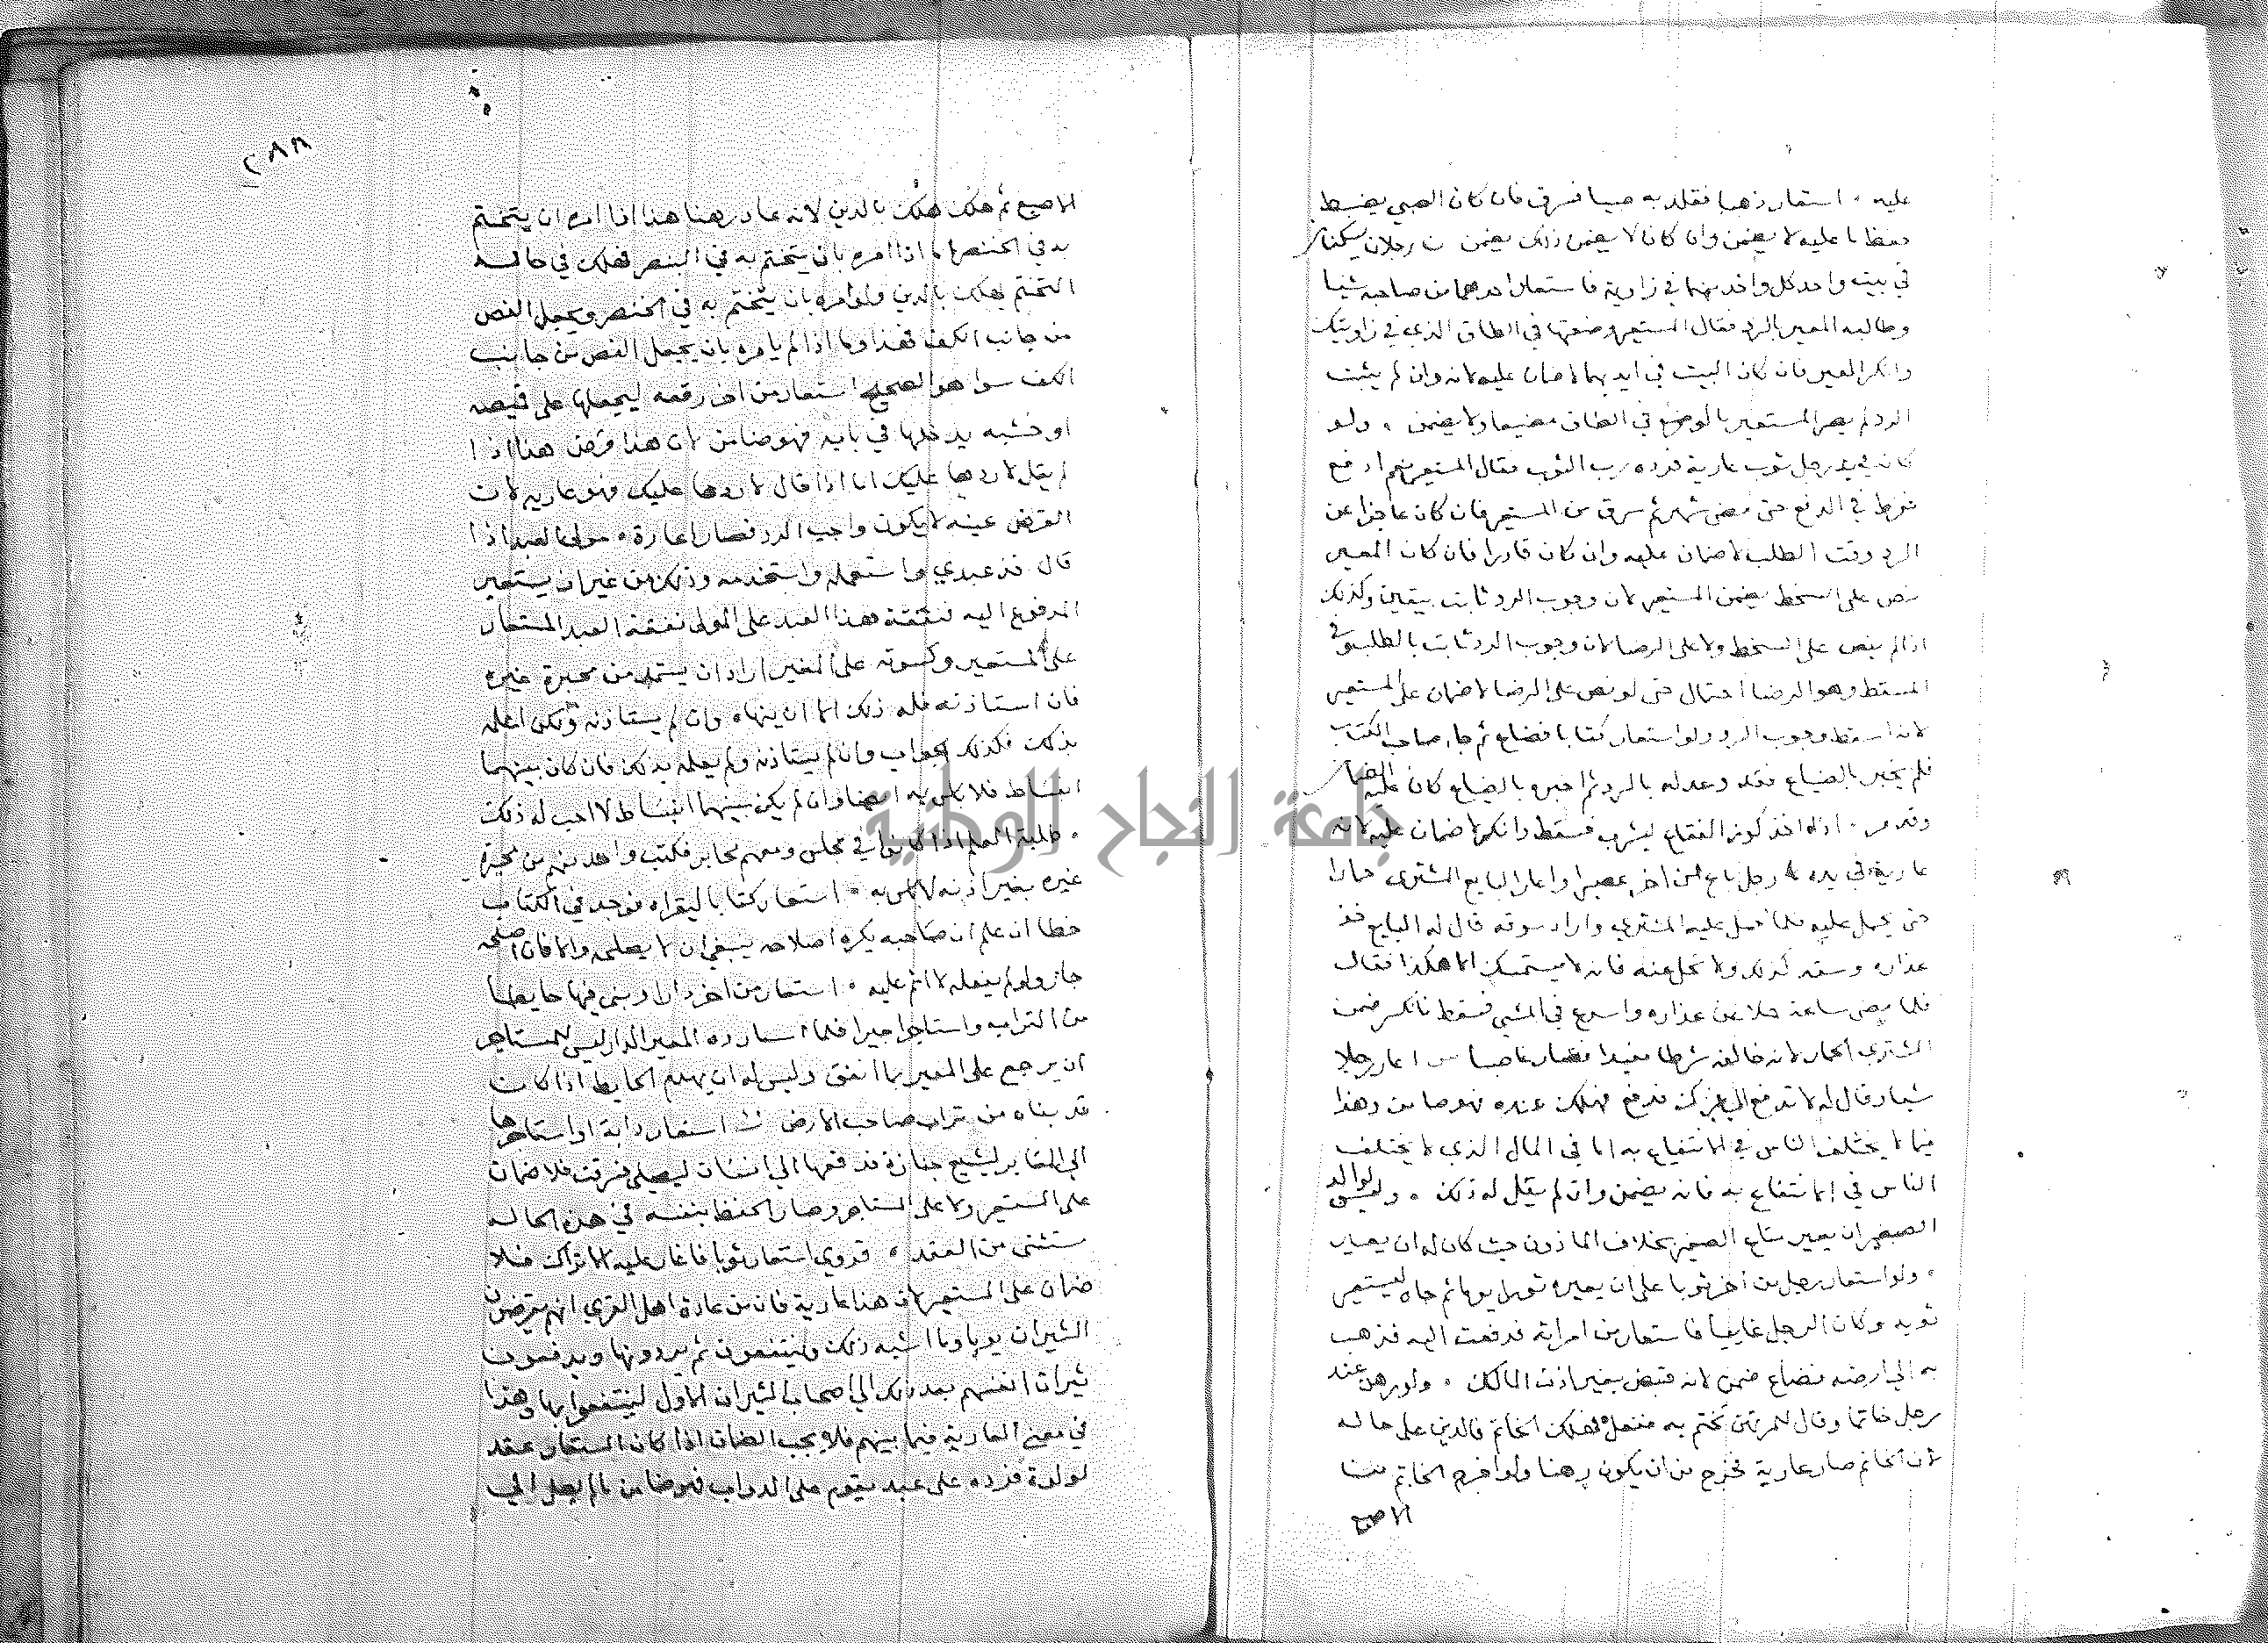 عليه . استعار ذهبا فقلد به صبيا فسرق فان كان الصبي يضبط
حفظ ما عليه لا يضمن وان كان لا يضمن ذلك يضمن رجلان يسكنان
في بيت واحد كل واحد منهما في زاوية فاستعار احدهما من صاحبه شيا
وطالبه المعير بالرد فقال المستعير وضعتها في الطاق الذي في زاويتك
وانكر المعير فان كان البيت في ايديهما لا ضمان عليه لانه وان لم يثبت
الرد لم يصر المستعير بالوضع في الطاق مضيعا ولا يضمن . ولو
كان في يد رجل ثوب عارية فرده رب الثوب فقال المستعير نعم ادفع
ففرط في الدفع حتى مضى شهر ثم سرق من المستعير فان كان عاجزا عن
الرد وقت الطلب لا ضمان عليه وان كان قادرا فان كان المعير
نص على السخط يضمن المستعير لان وجوب الرد ثابت بيقين وكذلك
اذا لم ينص على السخط ولا على الرضا لان وجوب الرد ثابت بالطلب وفي
المسقط وهو الرضا احتمال حتى لو نص على الرضا لا ضمان على المستعير
لانه اسقط وجوب الرد ولو استعار كتابا فضاع ثم جاء صاحب الكتاب
فلم يخبر بالضياع فقد وعد له بالرد ثم اخبره بالضياع كان عليه الضمان
وقد مر . اذا اخذ كوز الفقاع ليشرب فسقط وانكسر لا ضمان عليه لانه
عارية في يده رجل باع من اخر عصيرا واعار البايع المشتري حمارا
حتى يحمل عليه فلما حمل عليه المشتري واراد سوقه قال له البايع خذ
عذاره وسقه كذلك ولا تخل عنه فانه لا يستمسك الا هكذا فقال
فلما مضى ساعة خلا عن عذاره واسرع في المشي فسقط فانكسر ضمن
المشتري الحمار لانه خالف شرطا مفيدا فصار غاصبا اعار رجلا
شيا وقال له لا تدفع الى غيرك فدفع فهلك عنده فهو ضامن وهذا
فيما لا يختلف الناس في الانتفاع به اما في المال الذي لا يختلف
الناس في الانتفاع به فانه يضمن وان لم يقل له ذلك . وليس لوالد
الصغير ان يعير متاع الصغير بخلاف الماذون حيث كان له ان يعير
. ولو استعار رجل من اخر ثوبا على ان يعيره ثوبه يوما ثم جاء ليستعير
ثوبه وكان الرجل غايبا فاستعار من امراته فدفعت اليه فذهب
به الى ارضه فضاع ضمن لانه قبض بغير اذن المالك . ولو رهن عند
رجل خاتما وقال للمرتهن تختم به ففعل فهلك الخاتم فالدين على حاله
لان الخاتم صار عارية فخرج من ان يكون رهنا ولو اخرج الخاتم من
الاصبع
٢٨٨
الاصبع ثم هلك هلك بالدين لانه عاد رهنا هذا اذا امره ان يتختم
به في الخنصر اما اذا امره بان يتختم به في البنصر فهلك في حالة
التختم يهلك بالدين ولو امره بان يتختم به في الخنصر ويجعل الفص
من جانب الكف فهذا وما اذا لم يامره بان يجعل الفص من جانب
الكف سوا هو الصحيح استعار من اخر رقعة ليجعلها على قميصه
او خشبه يدخلها في بابه فهو ضامن لان هذا قرض هذا اذا
لم يقل لاردها عليك اما اذا قال لاردها عليك فهو عاريه لان
القرض عينه لا يكون واجب الرد فصار اعارة . مولى العبد اذا
قال خذ عبدي واستعمله واستخدمه وذلك من غير ان يستعير
المدفوع اليه نفقة هذا العبد على المولى نفقة العبد المستعار
على المستعير وكسوته على المعير اراد ان يستمد من محبرة غيره
فان استاذنه فله ذلك الا ان ينهاه وان لم يستاذنه ولكن اعلمه
بذلك فكذلك الجواب وان لم يستاذنه ولم يعلمه بذلك فان كان بينهما
انبساط فلا باس به ايضا وان لم يكن بينهما انبساط لا احب له ذلك
. طلبة العلم اذا كانوا في مجلس ومعهم محابر فكتب واحد منهم من محبرة
غيره بغير اذنه لا باس به . استعار كتابا ليقراه فوجد في الكتاب
خطا ان علم ان صاحبه يكره اصلاحه ينبغي ان لا يصلحه والا فان اصلحه
جاز ولو لم يفعله لا اثم عليه . استعار من اخر دارا وبنى فيها حايطا
من التراب واستاجر اجيرا فلما استرده المعير الدار ليس للمستاجر
ان يرجع على المعير بما انفق وليس له ان يهدم الحايط اذا كان
قد بناه من تراب صاحب الارض استعار دابة او استاجرها
الى المقابر ليشيع جنازة فدفعها الى انسان ليصلي فسرقت فلا ضمان
على المستعير ولا على المستاجر وصار الحفظ بنفسه في هذه الحالة
مستثنى من العقد . قروي استعار ثورا فاغار عليه الاتراك فلا
ضمان على المستعير لان هذا عارية فان من عادة اهل القرى انهم يقرضون
الثيران يوما وما اشبه ذلك فينتفعون ثم يردونها ويدفعون
ثيران انفسهم بعد ذلك الى اصحاب الثيران الاول لينتفعوا بها وهذا
في معنى العارية فيما بينهم فلا يجب الضمان اذا كان المستعار عقد
لولوة فرده على عبد يقوم على الدواب فهو ضامن ما لم يصل الى
جامعة النجاح الوطنية